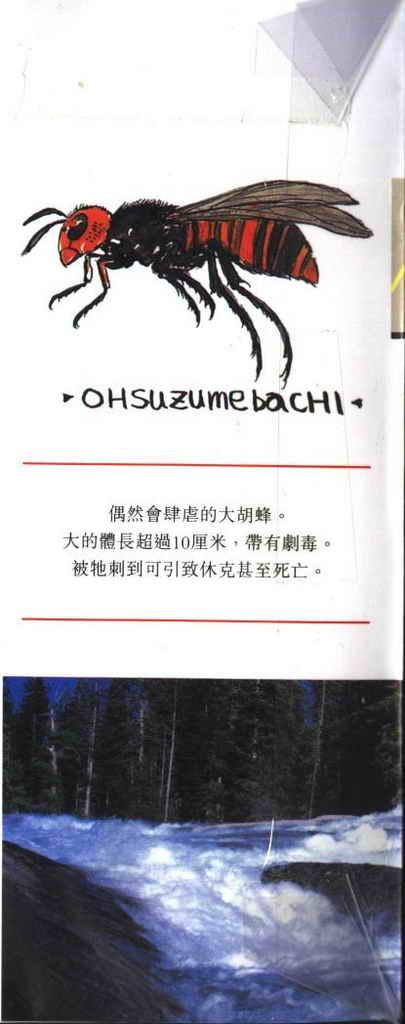 OHSUZUMEBACHI
偶然會肆虐的大胡蜂。
大的體長超過10厘米，帶有劇毒。
被牠刺到可引致休克甚至死亡。